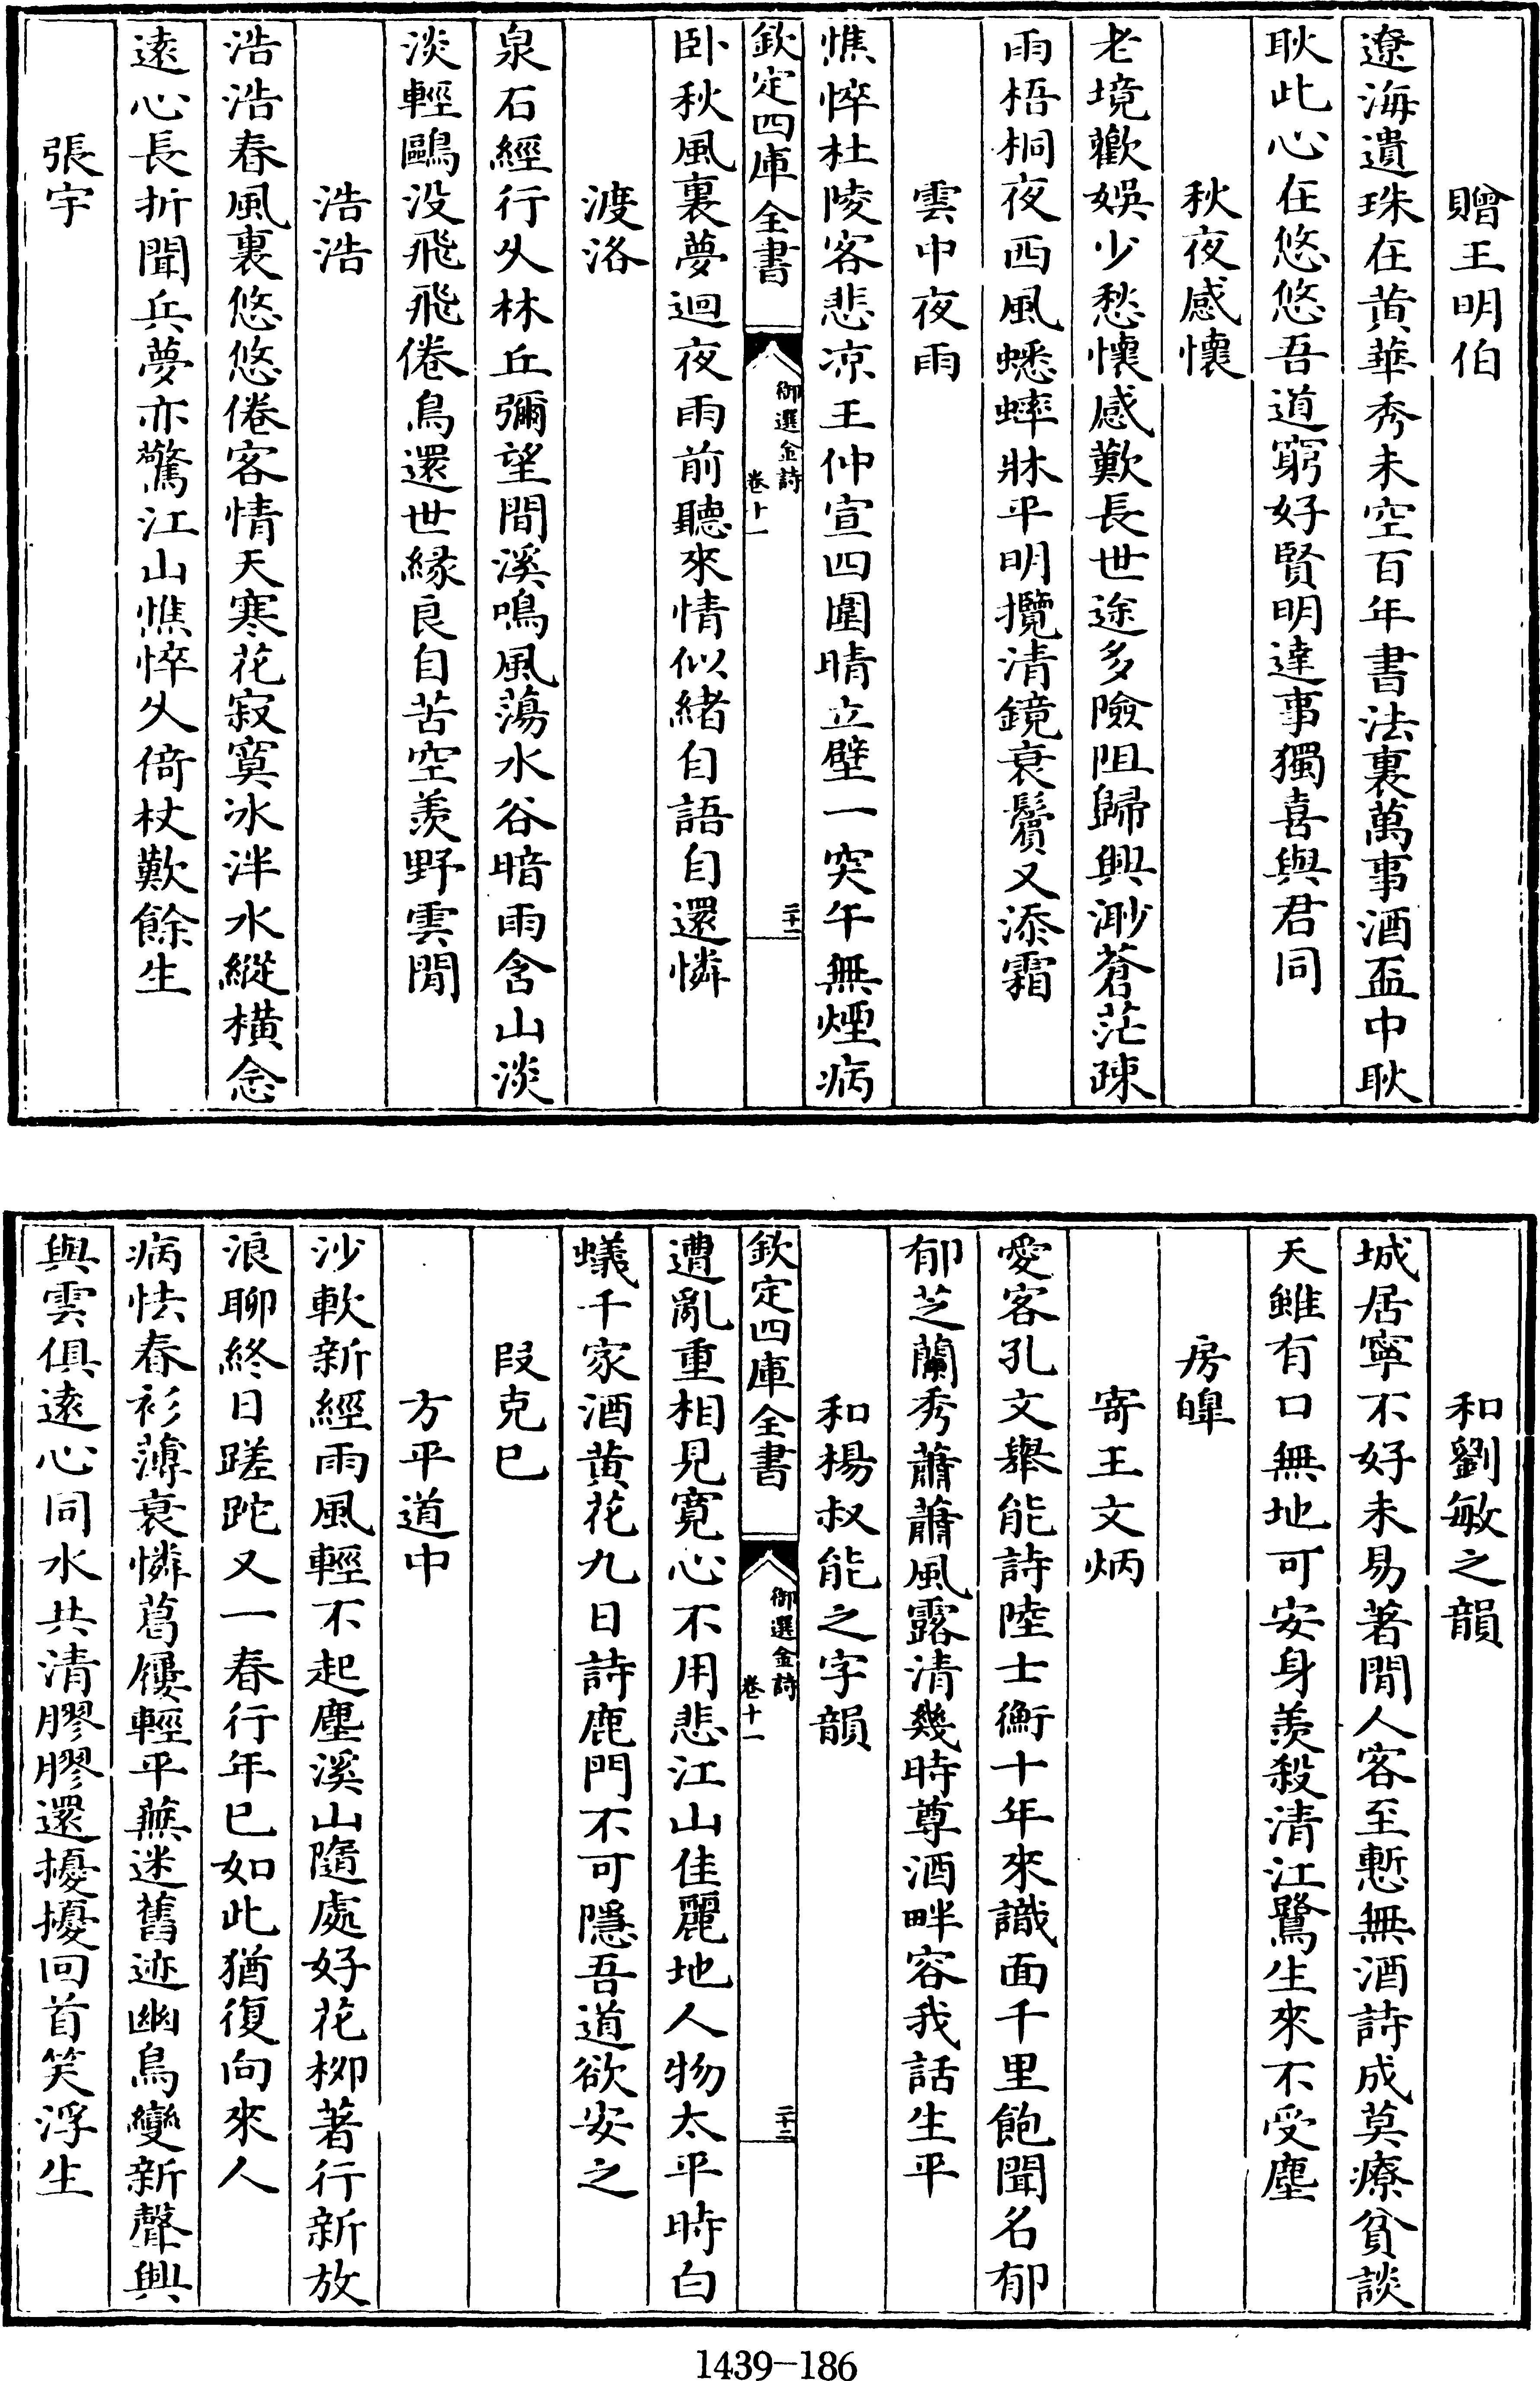 贈王明伯
遼海遺珠在黄華秀未空百年書法裏萬事酒盃中耿
耿此心在悠悠吾道窮好賢明達事獨喜與君同
秋夜感懷
老境歡娯少愁懷感歎長世途多險阻歸興渺蒼茫疎
雨梧桐夜西風蟋蟀牀平明攬清鏡衰鬢又添霜
雲中夜雨
憔悴杜陵客悲凉王仲宣四圍晴立壁一突午無煙病
欽定四庫全書
御選金詩
卷十一
二十一
卧秋風裏夢迴夜雨前聽來情似緒自語自還憐
渡洛
泉石經行久林丘彌望間溪鳴風蕩水谷暗雨含山淡
淡輕鷗没飛飛倦鳥還世緣良自苦空羨野雲閒
浩浩
浩浩春風裏悠悠倦客情天寒花寂寞冰泮水縱橫念
遠心長折聞兵夢亦驚江山憔悴久倚杖歎餘生
張宇
和劉敏之韻
城居寧不好未易著閒人客至慙無酒詩成莫療貧談
天雖有口無地可安身羨殺清江鷺生來不受塵
房皥
寄王文炳
愛客孔文舉能詩陸士衡十年來識面千里飽聞名郁
郁芝蘭秀蕭蕭風露清幾時尊酒畔容我話生平
和楊叔能之字韻
欽定四庫全書
御選金詩
卷十一
二十二
遭亂重相見寛心不用悲江山佳麗地人物太平時白
蟻千家酒黄花九日詩鹿門不可隱吾道欲安之
段克已
方平道中
沙軟新經雨風輕不起塵溪山隨處好花栁著行新放
浪聊終日蹉跎又一春行年已如此猶復向來人
病怯春衫薄衰憐葛屨輕平蕪迷舊迹幽鳥變新聲興
與雲俱遠心同水共清膠膠還擾擾回首笑浮生
1439-186